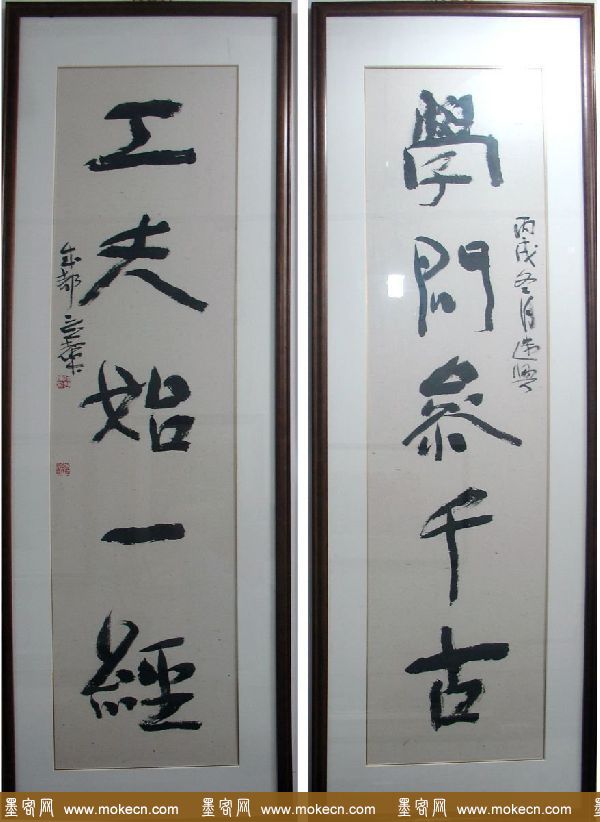 學問參千古
丙戌冬月遣興
工夫始一經
成都
墨客网 www.mokecn.com 墨客网 www.mokecn.com 墨客网 www.mokecn.com 墨